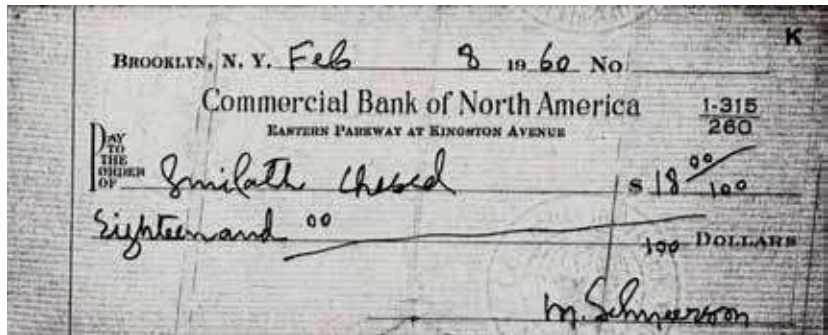 K
BROOKLYN, N. Y. Feb 8 1960 No
Commercial Bank of North America
EASTERN PARKWAY AT KINGSTON AVENUE
1-315
260
PAY
TO
THE
ORDER
OF Gmilath Chesed $ 18 00/100
Eighteen and 00/100 DOLLARS
M. Schneerson